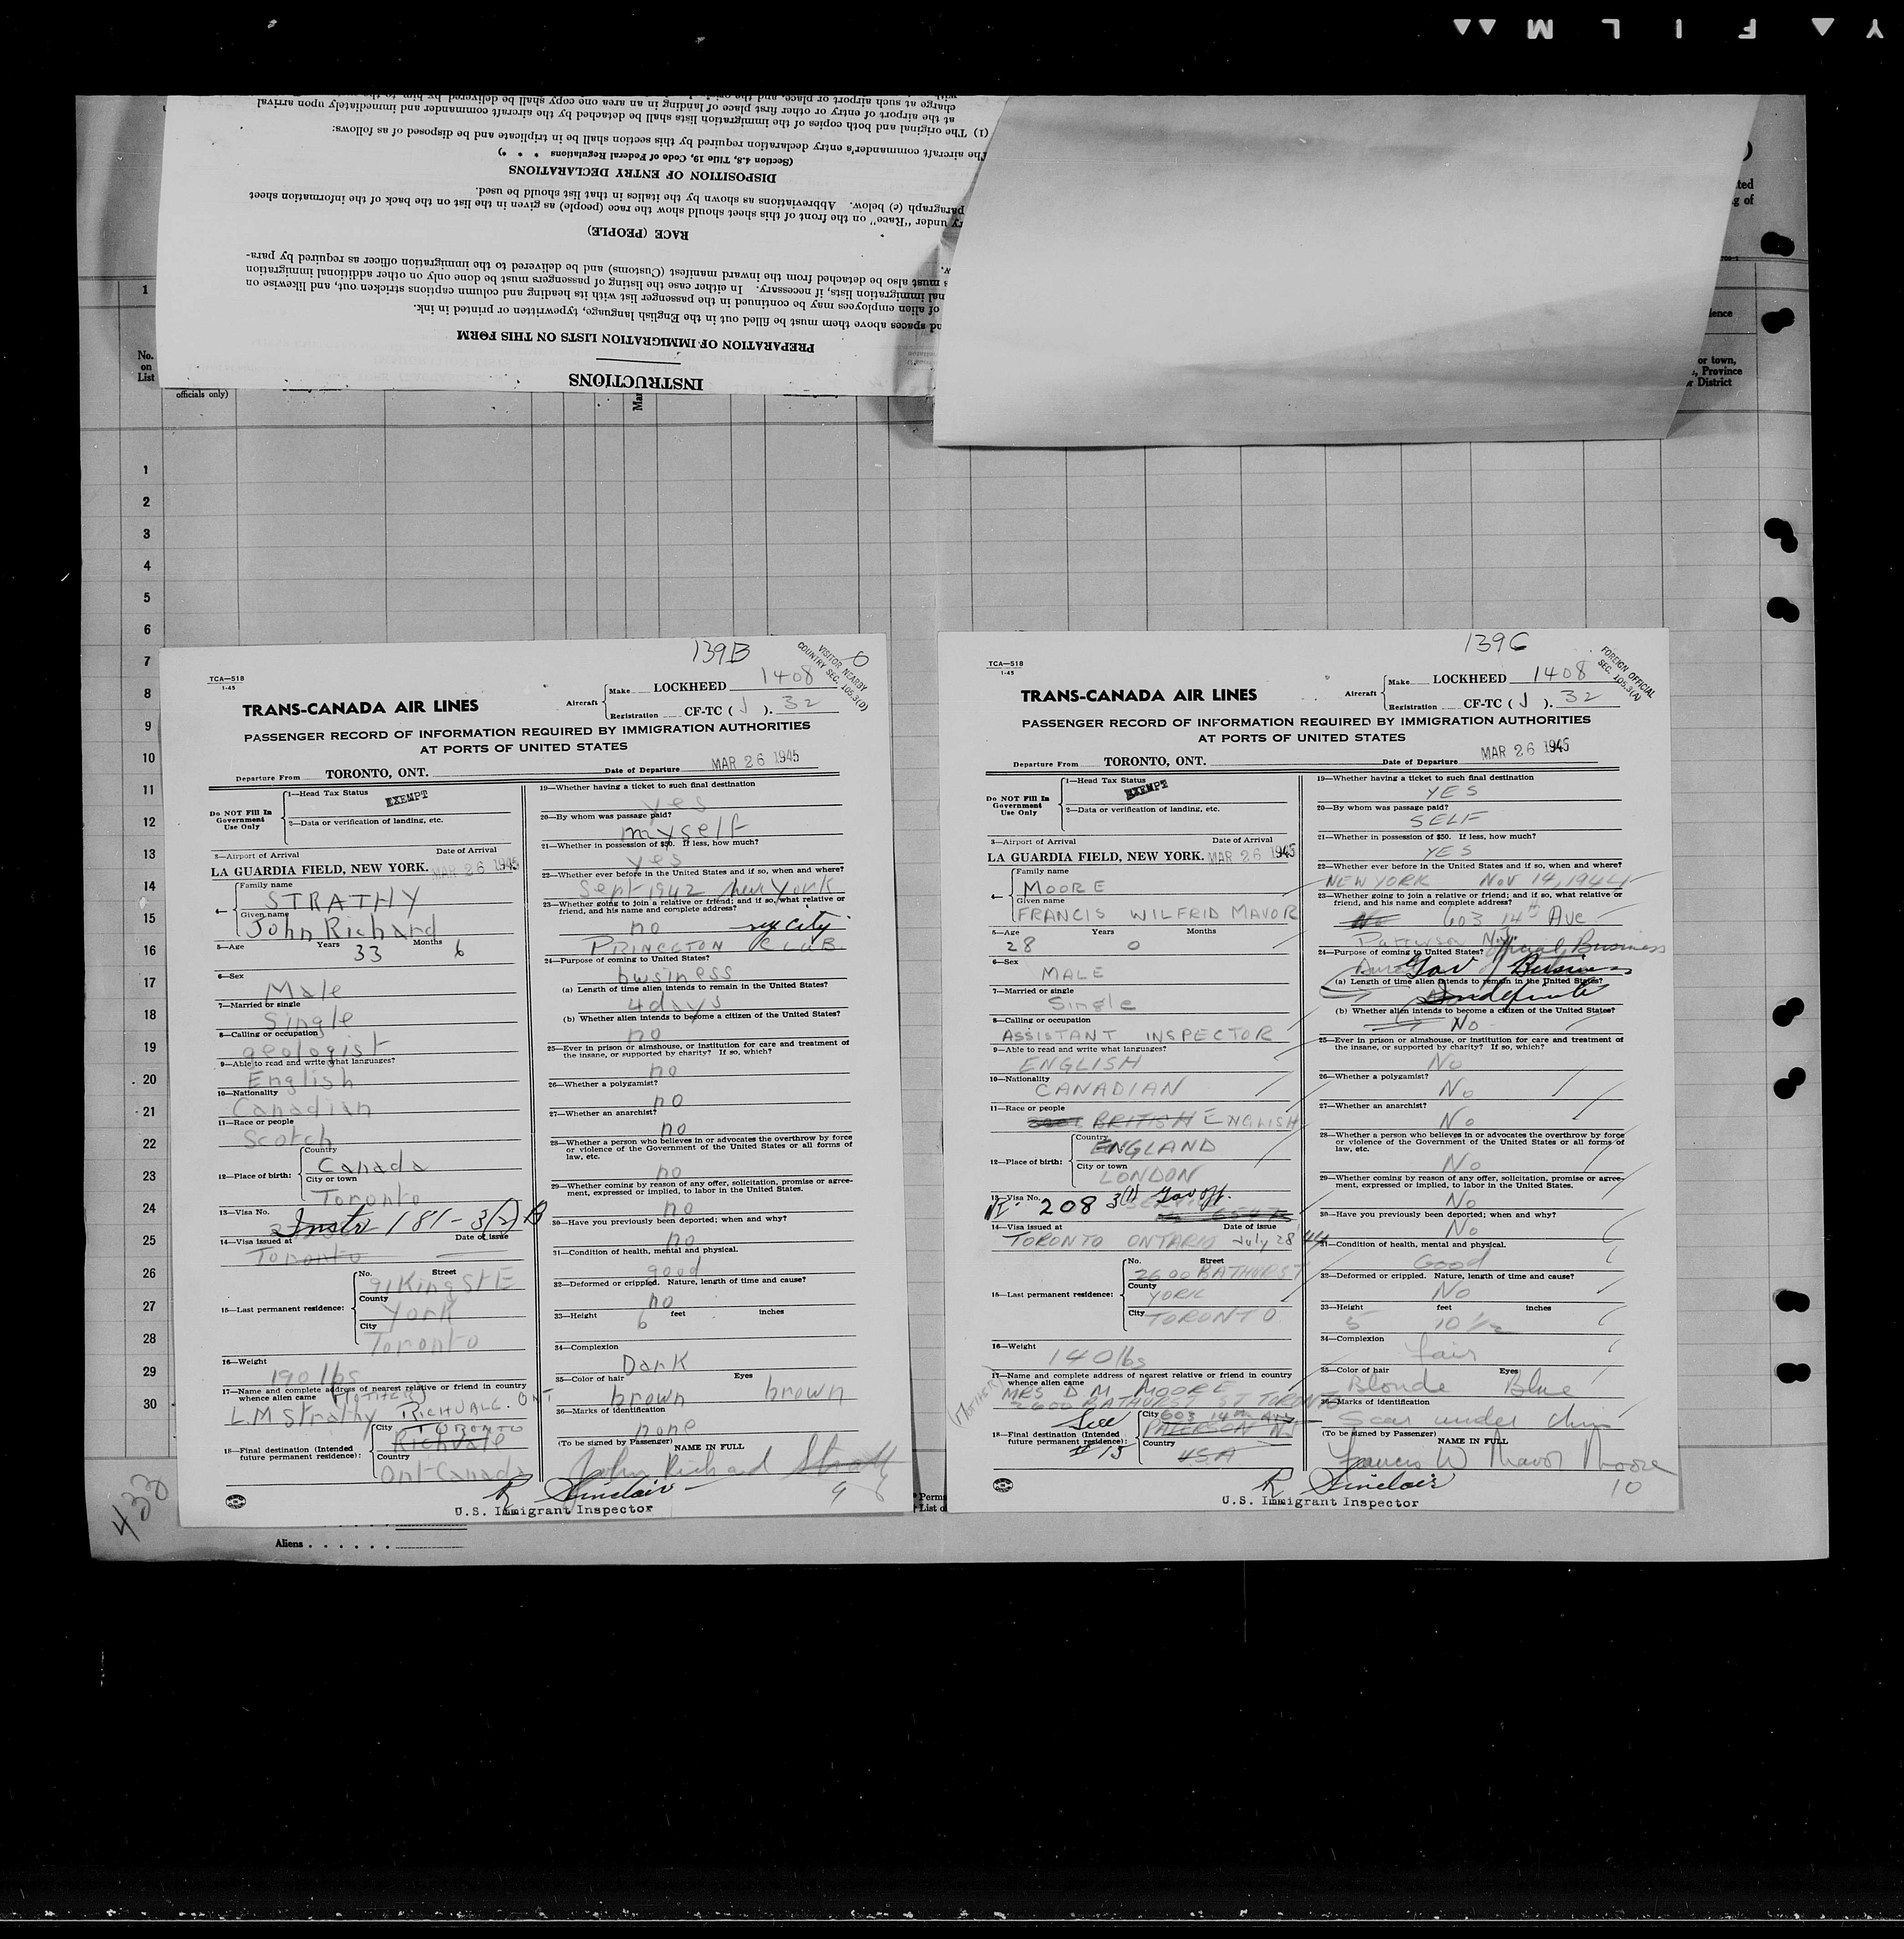 Y ▲ F I L M ▲▲
INSTRUCTIONS
PREPARATION OF IMMIGRATION LISTS ON THIS FORM
nd spaces above them must be filled out in the English language, typewritten or printed in ink.
of alien employees may be continued in the passenger list with its heading and column captions stricken out, and likewise on
nal immigration lists, if necessary. In either case the listing of passengers must be done only on other additional immigration
s must also be detached from the inward manifest (Customs) and be delivered to the immigration officer as required by para-
w.
RACE (PEOPLE)
ry under "Race" on the front of this sheet should show the race (people) as given in the list on the back of the information sheet
paragraph (c) below. Abbreviations as shown by the italics in that list should be used.
DISPOSITION OF ENTRY DECLARATIONS
(Section 4.8, Title 19, Code of Federal Regulations * * *)
The aircraft commander's entry declaration required by this section shall be in triplicate and be disposed of as follows:
(1) The original and both copies of the immigration lists shall be detached by the aircraft commander and immediately upon arrival
at the airport of entry or other first place of landing in an area one copy shall be delivered by him to the
charge at such airport or place, and the
ted
g of
ience
or town,
, Province
r District
1
No.
on
List
officials only)
Mar
1
2
3
4
5
6
7
8
9
10
11
12
13
14
15
16
17
18
19
20
21
22
23
24
25
26
27
28
29
30
433
Aliens
Perms
List o
139B
VISITOR NEARBY
COUNTRY SEC. 105.3(D)
TCA—518
1-45
TRANS-CANADA AIR LINES
Aircraft
Make LOCKHEED 1408
Registration CF-TC ( J ). 32
PASSENGER RECORD OF INFORMATION REQUIRED BY IMMIGRATION AUTHORITIES
AT PORTS OF UNITED STATES
Departure From TORONTO, ONT. Date of Departure MAR 26 1945
Do NOT Fill In
Government
Use Only
1—Head Tax Status
EXEMPT
2—Data or verification of landing, etc.
3—Airport of Arrival Date of Arrival
LA GUARDIA FIELD, NEW YORK. MAR 26 1945
4—
Family name
STRATHY
Given name
John Richard
5—Age Years Months
33 6
6—Sex
Male
7—Married or single
Single
8—Calling or occupation
geologist
9—Able to read and write what languages?
English
10—Nationality
Canadian
11—Race or people
Scotch
12—Place of birth:
Country
Canada
City or town
Toronto
13—Visa No.
Instr 181-3(2)B
14—Visa issued at Date of issue
Toronto
15—Last permanent residence:
No. Street
91 King St E
County
York
City
Toronto
16—Weight
190 lbs
17—Name and complete address of nearest relative or friend in country
whence alien came (MOTHER)
L.M Strathy RICHVALE. ONT
18—Final destination (Intended
future permanent residence):
City TORONTO
Richvale
Country
Ont-Canada
19—Whether having a ticket to such final destination
yes
20—By whom was passage paid?
myself
21—Whether in possession of $50. If less, how much?
yes
22—Whether ever before in the United States and if so, when and where?
Sept 1942 New York
23—Whether going to join a relative or friend; and if so, what relative or
friend, and his name and complete address?
no ny city
PRINCETON CLUB.
24—Purpose of coming to United States?
business
(a) Length of time alien intends to remain in the United States?
4 days
(b) Whether alien intends to become a citizen of the United States?
no
25—Ever in prison or almshouse, or institution for care and treatment of
the insane, or supported by charity? If so, which?
no
26—Whether a polygamist?
no
27—Whether an anarchist?
no
28—Whether a person who believes in or advocates the overthrow by force
or violence of the Government of the United States or all forms of
law, etc.
no
29—Whether coming by reason of any offer, solicitation, promise or agree-
ment, expressed or implied, to labor in the United States.
no
30—Have you previously been deported; when and why?
no
31—Condition of health, mental and physical.
good
32—Deformed or crippled. Nature, length of time and cause?
no
33—Height feet inches
6
34—Complexion
Dark
35—Color of hair Eyes
brown brown
36—Marks of identification
none
(To be signed by Passenger) NAME IN FULL
John Richard Strathy
R Sinclair
U.S. Immigrant Inspector
9
139C
FOREIGN OFFICIAL
SEC. 105.3(A)
TCA—518
1-45
TRANS-CANADA AIR LINES
Aircraft
Make LOCKHEED 1408
Registration CF-TC ( J ). 32
PASSENGER RECORD OF INFORMATION REQUIRED BY IMMIGRATION AUTHORITIES
AT PORTS OF UNITED STATES
Departure From TORONTO, ONT. Date of Departure MAR 26 1945
Do NOT Fill In
Government
Use Only
1—Head Tax Status
EXEMPT
2—Data or verification of landing, etc.
3—Airport of Arrival Date of Arrival
LA GUARDIA FIELD, NEW YORK. MAR 26 1945
4—
Family name
MOORE
Given name
FRANCIS WILFRID MAVOR
5—Age Years Months
28 0
6—Sex
MALE
7—Married or single
Single
8—Calling or occupation
ASSISTANT INSPECTOR
9—Able to read and write what languages?
ENGLISH
10—Nationality
CANADIAN
11—Race or people
BRITISH ENGLISH
12—Place of birth:
Country
ENGLAND
City or town
LONDON
13—Visa No.
208 3(1) Gov off.
14—Visa issued at Date of issue
TORONTO ONTARIO July 28 44
15—Last permanent residence:
No. Street
2600 BATHURST
County
YORK
City
TORONTO
16—Weight
140 lbs
17—Name and complete address of nearest relative or friend in country
whence alien came
(MOTHER)
MRS D M MOORE
2600 BATHURST ST TORONTO
18—Final destination (Intended
future permanent residence):
See
# 15
City 603 14th Ave
PATERSON NJ
Country
USA
19—Whether having a ticket to such final destination
YES
20—By whom was passage paid?
SELF
21—Whether in possession of $50. If less, how much?
YES
22—Whether ever before in the United States and if so, when and where?
NEW YORK NOV 14, 1944
23—Whether going to join a relative or friend; and if so, what relative or
friend, and his name and complete address?
No 603 14th Ave
Patterson N.J.
24—Purpose of coming to United States? Official Business
Gov Business
(a) Length of time alien intends to remain in the United States?
Indefinite
(b) Whether alien intends to become a citizen of the United States?
No
25—Ever in prison or almshouse, or institution for care and treatment of
the insane, or supported by charity? If so, which?
No
26—Whether a polygamist?
No
27—Whether an anarchist?
No
28—Whether a person who believes in or advocates the overthrow by force
or violence of the Government of the United States or all forms of
law, etc.
No
29—Whether coming by reason of any offer, solicitation, promise or agree-
ment, expressed or implied, to labor in the United States.
No
30—Have you previously been deported; when and why?
No
31—Condition of health, mental and physical.
Good
32—Deformed or crippled. Nature, length of time and cause?
No
33—Height feet inches
5 10 1/2
34—Complexion
fair
35—Color of hair Eyes
Blonde Blue
36—Marks of identification
Scar under chin
(To be signed by Passenger) NAME IN FULL
Francis W Mavor Moore
R Sinclair
U.S. Immigrant Inspector
10